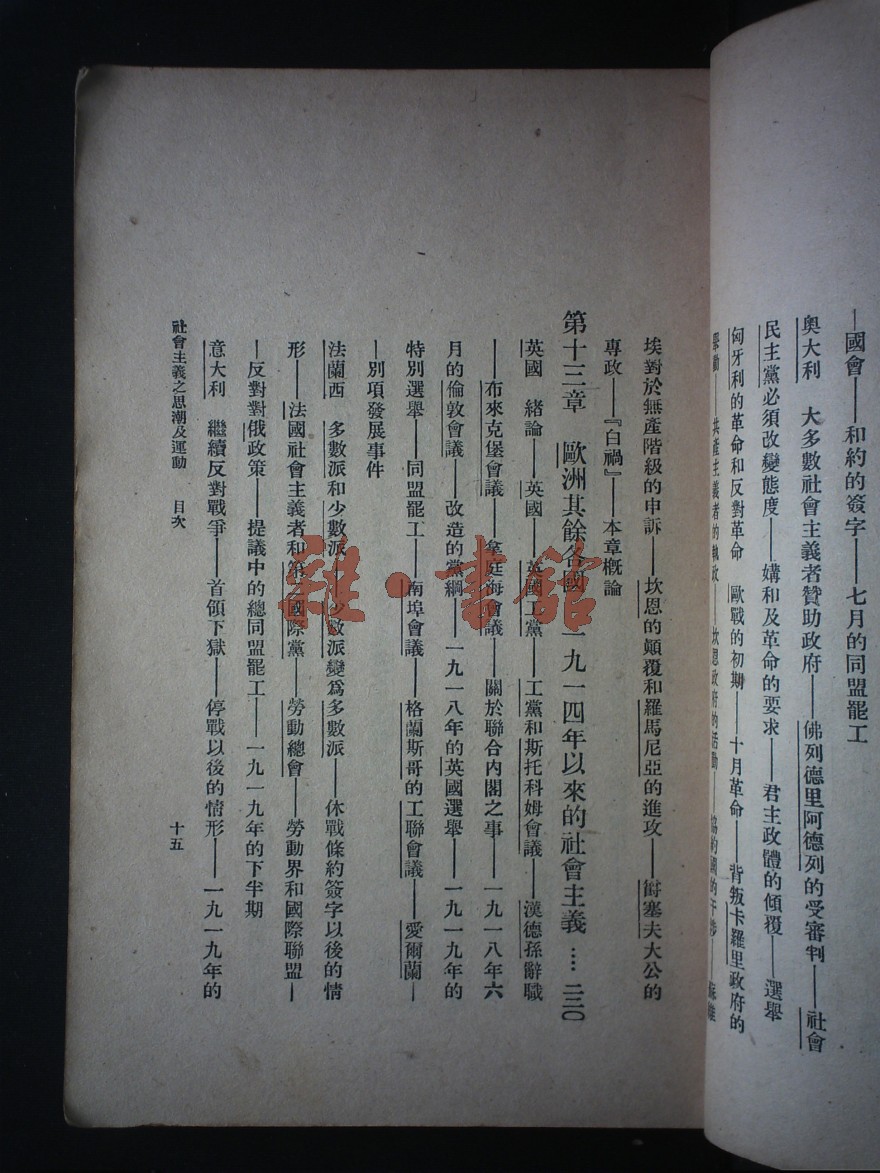 —國會——和約的簽字——七月的同盟罷工
奧大利　大多數社會主義者贊助政府——佛列德里阿德列的受審判——社會
民主黨必須改變態度——媾和及革命的要求——君主政體的傾覆——選舉
匈牙利的革命和反對革命　歐戰的初期——十月革命——背叛卡羅里政府的
舉動——共產主義者的執政——坎恩政府的活動——協約國的干涉——
埃對於無產階級的申訴——坎恩的顛覆和羅馬尼亞的進攻——爵塞夫大公的
專政——『白禍』——本章概論
第十三章　歐洲其餘各國一九一四年以來的社會主義 …… 二三〇
英國　緒論——英國——英國工黨——工黨和斯托科姆會議——漢德孫辭職
——布來克堡會議——拿庭海會議——關於聯合內閣之事——一九一八年六
月的倫敦會議——改造的黨綱——一九一八年的英國選舉——一九一九年的
特別選舉——同盟罷工——南埠會議——格蘭斯哥的工聯會議——愛爾蘭—
—別項發展事件
法蘭西　多數派和少數派——少數派變爲多數派——休戰條約簽字以後的情
形——法國社會主義者和第二國際黨——勞動總會——勞動界和國際聯盟—
—反對對俄政策——提議中的總同盟罷工——一九一九年的下半期
意大利　繼續反對戰爭——首領下獄——停戰以後的情形——一九一九年的
社會主義之思潮及運動　目次
十五
雜·書館